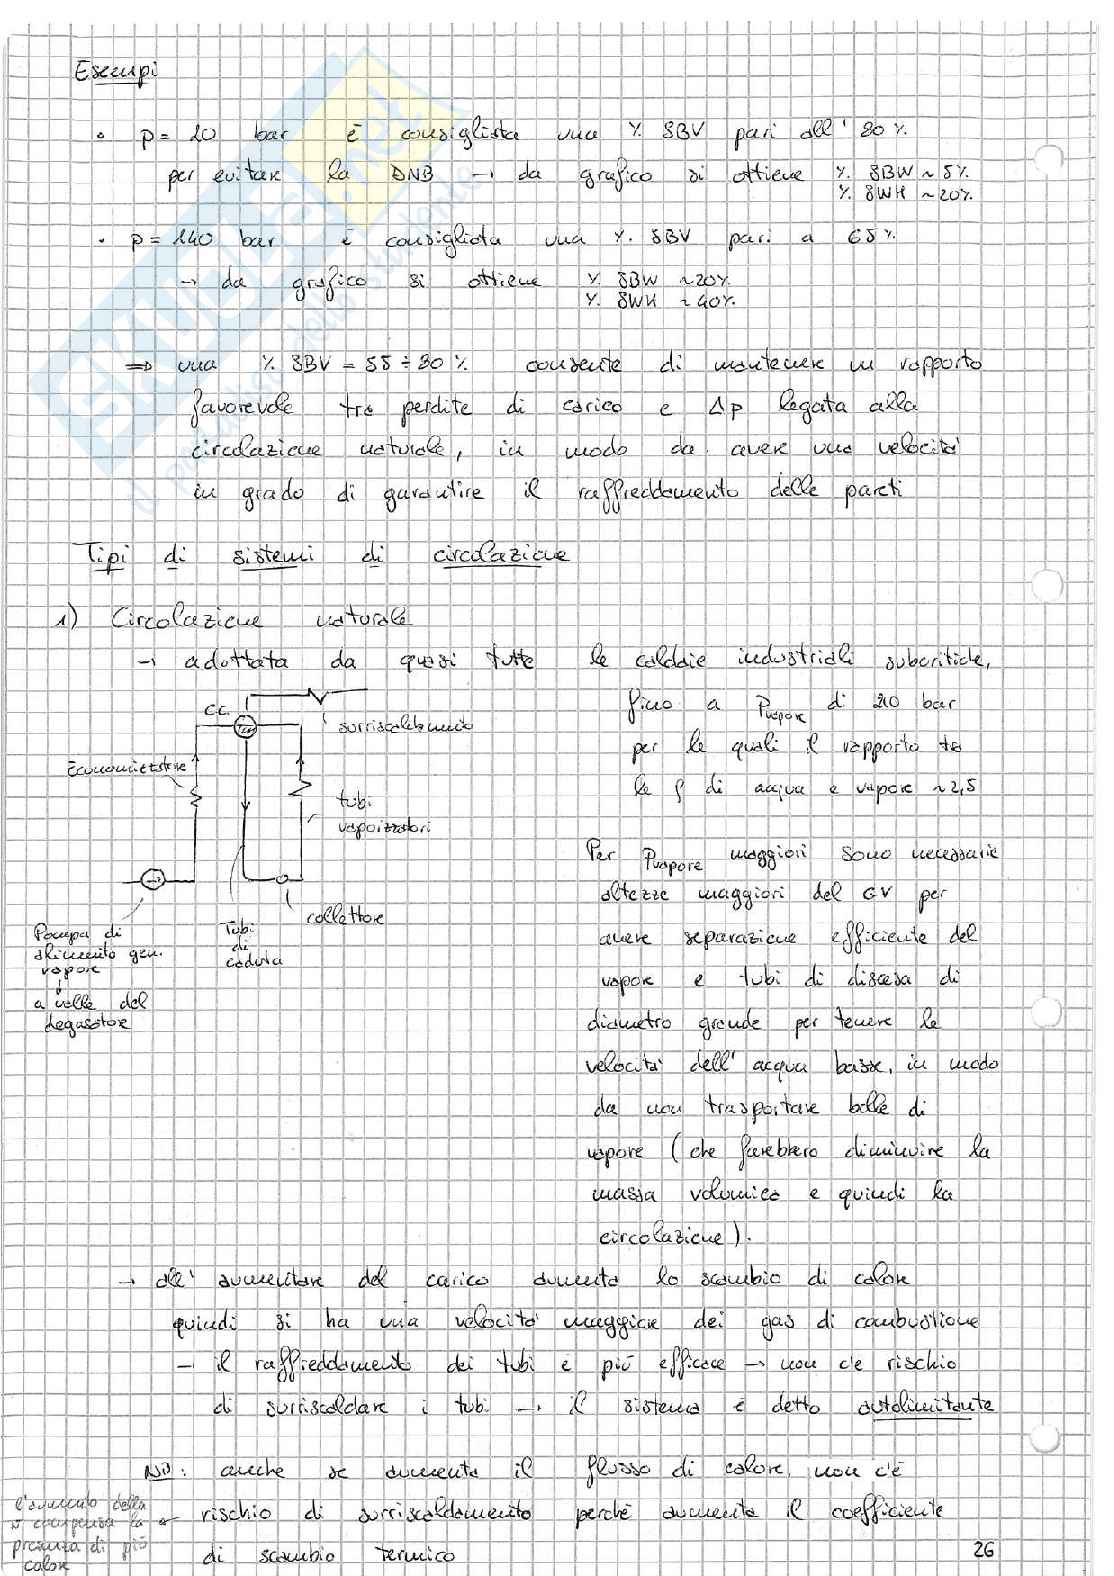 Esempi
• p = 20 bar è consigliata una % SBV pari all' 80 %
per evitare la DNB → da grafico si ottiene % SBW ~ 5%
% SWH ~ 20%
• p = 140 bar è consigliata una % SBV pari a 65 %
→ da grafico si ottiene % SBW ~ 20%
% SWH ~ 40%
⇒ una % SBV = 55 ÷ 80 % consente di mantenere un rapporto
favorevole tra perdite di carico e Δp legata alla
circolazione naturale, in modo da avere una velocità
in grado di garantire il raffreddamento delle pareti
Tipi di sistemi di circolazione
1) Circolazione naturale
→ adottata da quasi tutte le caldaie industriali subcritiche,
fino a Pvapore di 210 bar
per le quali il rapporto tra
le ρ di acqua e vapore ~ 2,5
C.C.
surriscaldamento
Economizzatore
tubi
vaporizzatori
collettore
Tubi
di
caduta
Pompa di
alimento gen.
vapore
↓
a valle del
degasatore
Per Pvapore maggiori sono necessarie
altezze maggiori del GV per
avere separazione efficiente del
vapore e tubi di discesa di
diametro grande per tenere le
velocità dell' acqua basse, in modo
da non trasportare bolle di
vapore (che farebbero diminuire la
massa volumica e quindi la
circolazione).
→ all' aumentare del carico aumenta lo scambio di calore
quindi si ha una velocità maggiore dei gas di combustione
→ il raffreddamento dei tubi è più efficace → non c'è rischio
di surriscaldare i tubi → il sistema è detto autolimitante
NB: anche se aumenta il flusso di calore, non c'è
rischio di surriscaldamento perché aumenta il coefficiente
di scambio termico
l'aumento della
v compensa la
presenza di più
calore
26